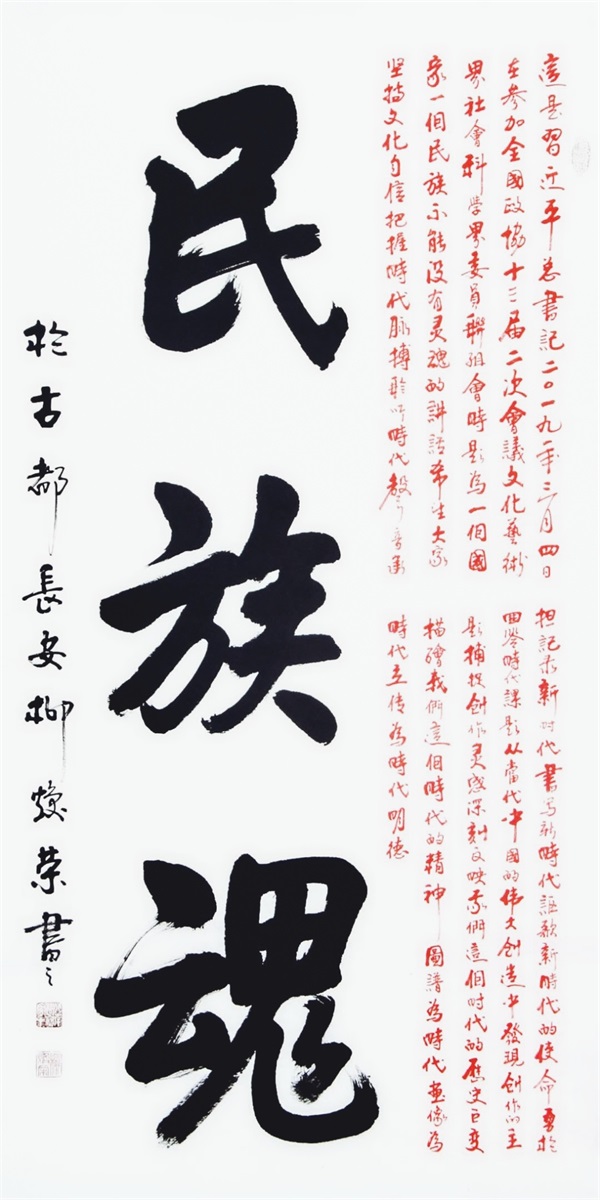 這是習近平总書記二〇一九年三月四日
在參加全國政協十三届二次會議文化藝術
界社會科學界委員聯組會時题為一個國
家一個民族不能没有灵魂的講話希望大家
坚持文化自信把握時代脉搏聆听時代聲音承
担記录新时代書写新時代謳歌新時代的使命勇於
回答時代課题从當代中國的伟大創造中發現創作的主
题捕捉創作灵感深刻反映我們這個时代的歷史巨变
描繪我們這個時代的精神圖譜為時代画像為
時代立传為時代明德
民族魂
於古都長安柳焕荣書之